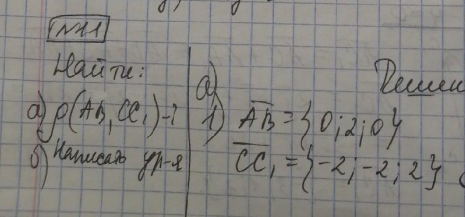 №1
Найти:
а) ρ(AB, CC₁) - ?
б) Написать ур-я
а) Решен
1) AB = {0; 2; 0}
CC₁ = {-2; -2; 2}